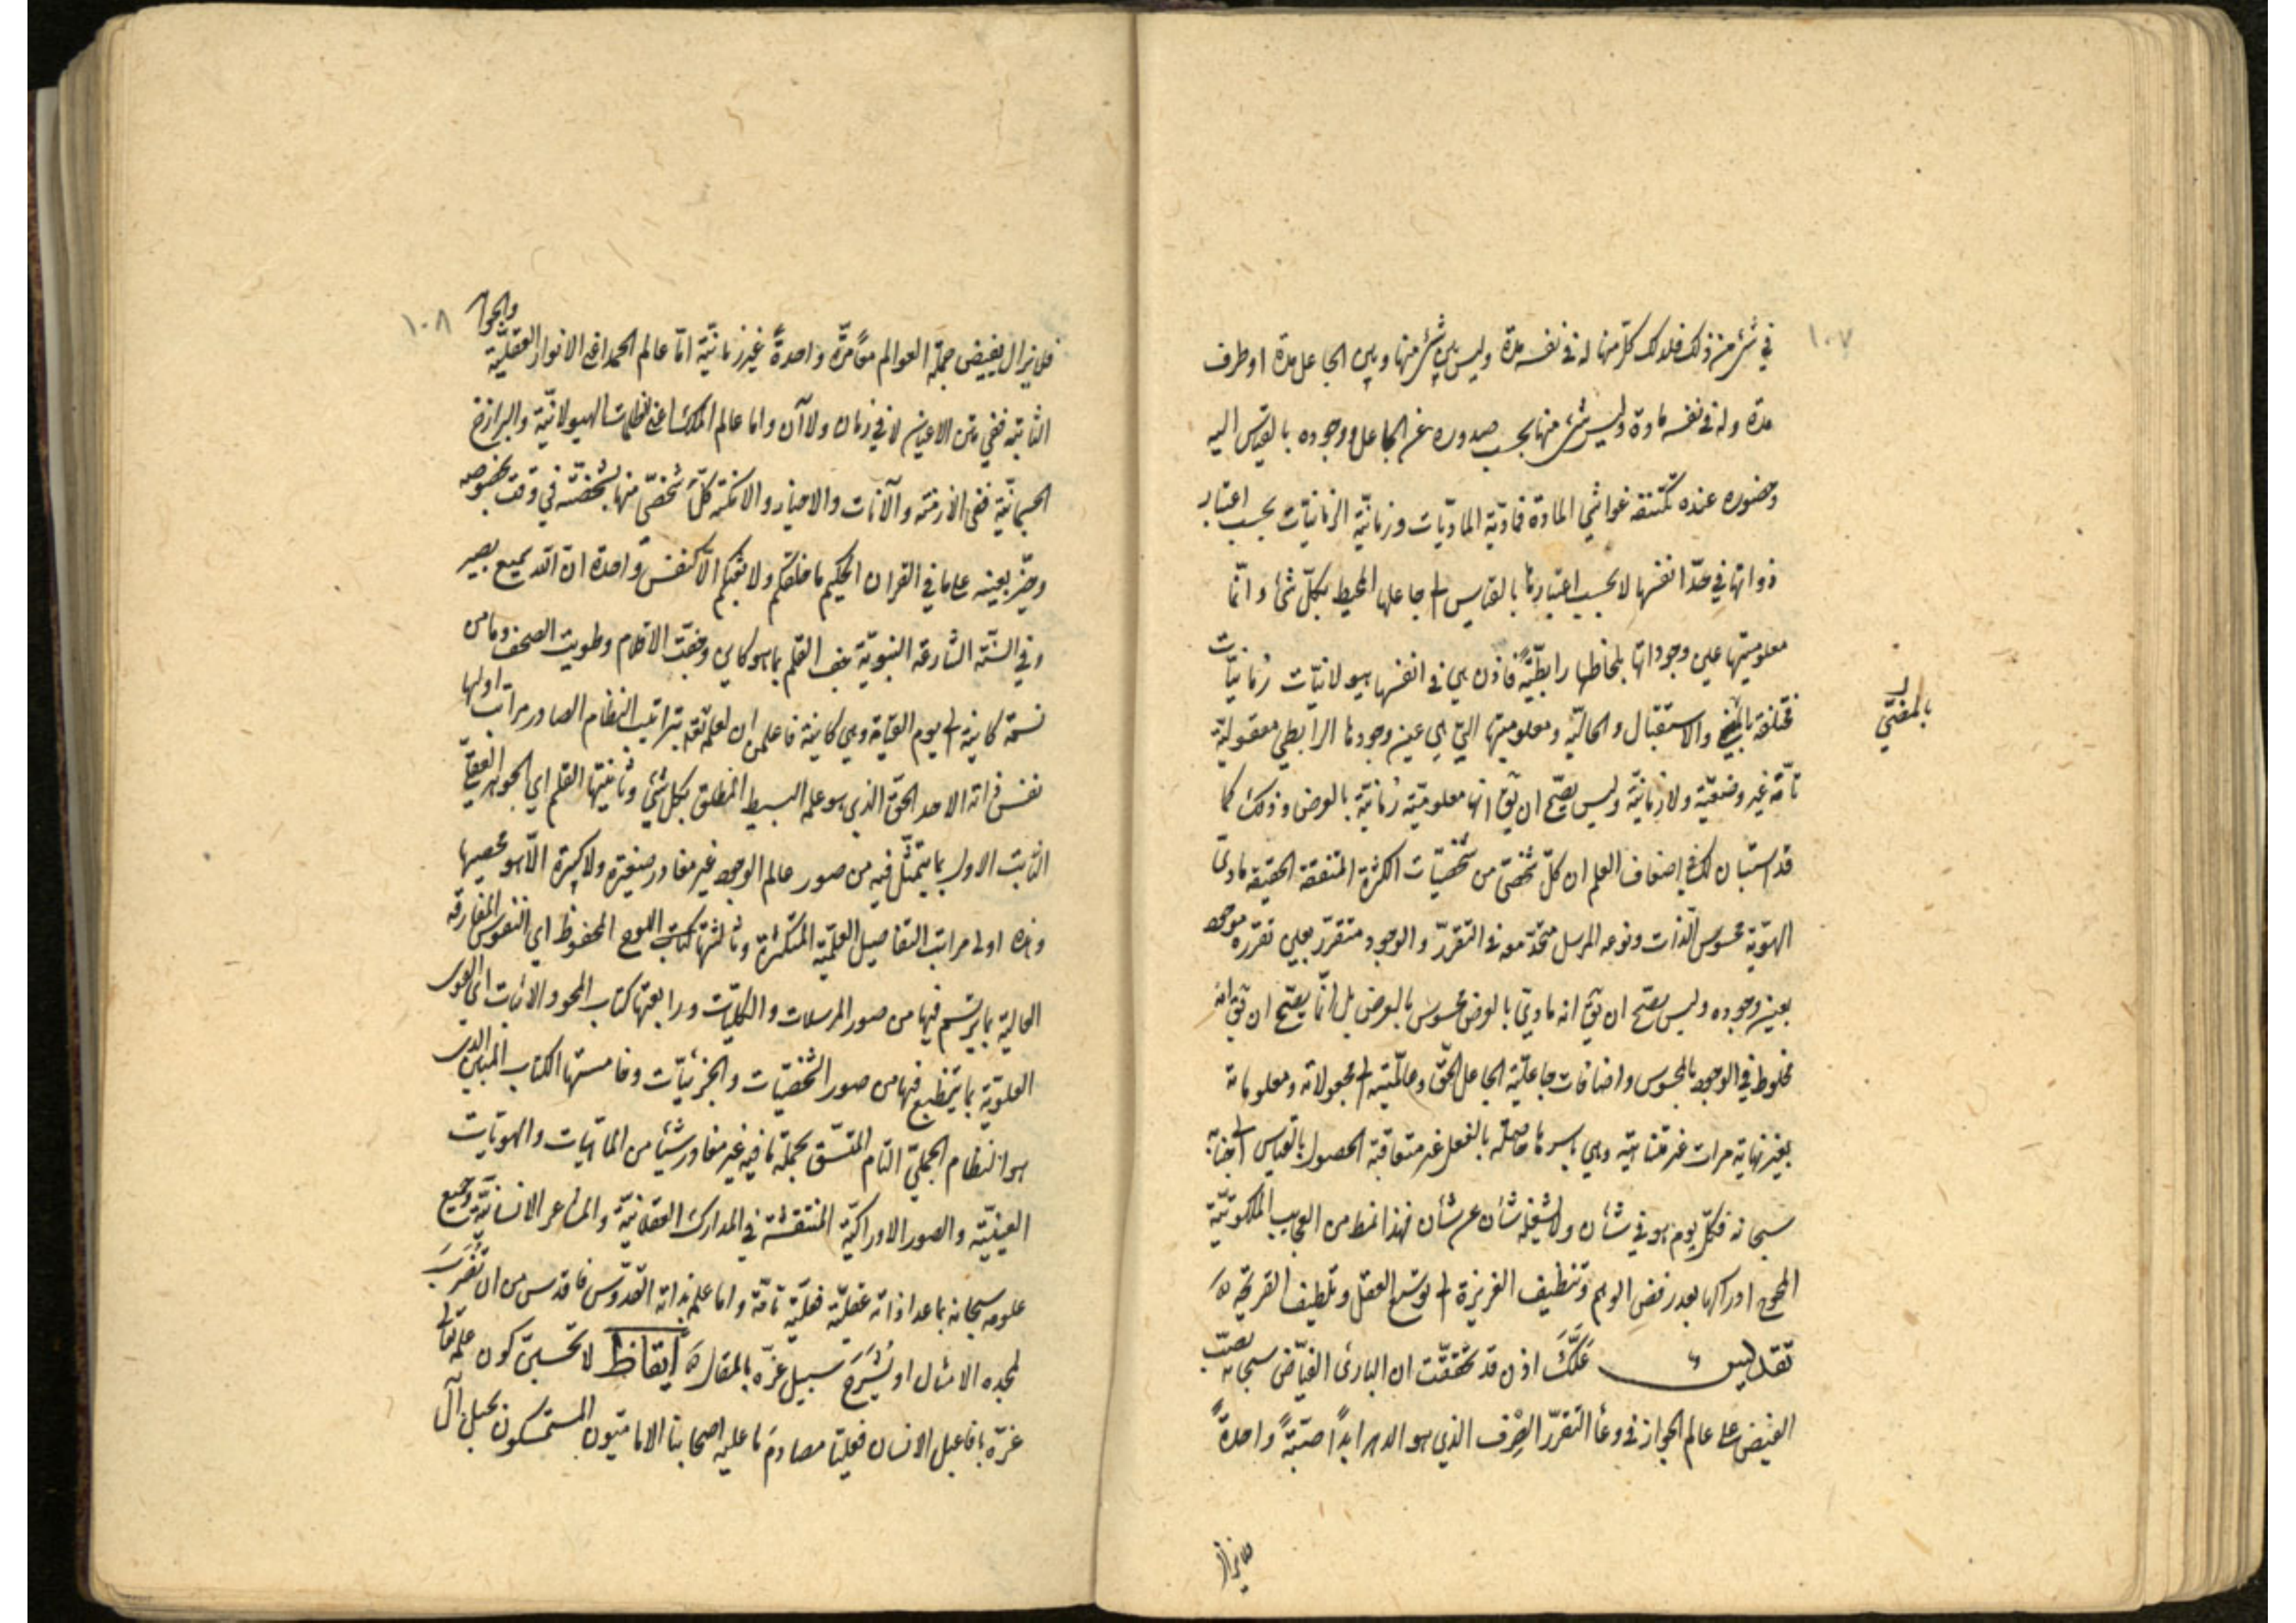 ١٠٧
في شئ من ذلك فلذلك كل منها له في نفسه مدة وليس بين شئ منها وبين الجاعل مدة او طرف
مدة وله في نفسه مادة وليس شئ منها بحسب صدوره عن الجاعل ووجوده بالقياس اليه
وحضوره عنده تكتنفه غواشي المادة فمادّية الماديّات وزمانيّة الزمانيّات بحسب اعتبار
ذواتها في حدّ انفسها لا بحسب اعتبارها بالقياس الى جاعلها المحيط بكلّ شئ وانّما
معلوميتها عين وجوداتها بلحاظها رابطيّةً فاذن هي في انفسها هيولانيّات زمانيّات
مختلفة والاستقبال والحاليّة ومعلوميتها التي هي عين وجودها الرابطي معقولية
بالمضيّ
تامّة غير وضعيّة ولا زمانيّة وليس يصحّ ان يق انها معلوميّة زمانيّة بالعرض وذلك كما
قد استبان لك في اضعاف العلم ان كلّ شخصيّ من شخصيّات الكثرة المتفقة الحقيقة ماديّ
الهويّة محسوس الذات ونوعه المرسل متحدّ معه في التقرّر والوجود متقرّر بعين تقرّره موجود
بعين وجوده وليس يصحّ ان يق انه ماديّ بالعرض محسوس بالعرض بل انّما يصحّ ان يق انه
مخلوط في الوجود بالمحسوس واضافات جاعليّة الجاعل الحقّ وعالميّته الى مجعولاته ومعلوماته
بغير نهاية مرات غير متناهية وهي باسرها حاصلة بالفعل غير متعاقبة الحصول بالقياس الى جنابه
سبحانه فكلّ يوم هو في شأن ولا يشغله شأن عن شأن فهذا نمط من العجايب الملكوتيّة
المحوج ادراكها بعد رفض الوهم وتنظيف الغريزة الى توسّع العقل وتلطيف القريحة
تقديس علّك اذن قد تحققّت ان البارئ الفيّاض سبحانه يصبّ
الفيض على عالم الجواز في وعاء التقرّر الصّرف الذي هو الدهر ابداً صبّةً واحدةً
فلا يزال
١٠٨
فلا يزال يفيض جملة العوالم معاً مرّة واحدةً غير زمانيّة امّا عالم الحمد اعني الانوار العقليّة والجواهر
الثابتة ففي متن الاعيان لا في زمان ولا آن واما عالم الملك اعني الظلمات الهيولانيّة والبرازخ
الجسمانيّة ففي الازمنة والآنات والاحياز والامكنة كلّ شخصيّ منها بشخصيّته في وقت بخصوصه
وحيّز بعينه على ما في القران الحكيم ما خلقكم ولا بعثكم الّا كنفس واحدة ان الله سميع بصير
وفي السنّة الشارعة النبويّة جف القلم بما هو كاين وجفّت الاقلام وطويت الصحف وما من
نسمة كاينة الى يوم القيامة وهي كاينة فاعلمن ان لعلمه تعه بتراتيب النظام الصادر مراتب اولها
نفس ذاته الاحد الحقّ الذي هو علمه البسيط المطلق بكل شئ وثانيتها القلم اي الجوهر العقليّ
الثابت الاول بما يتمثّل فيه من صور عالم الوجود غير مغادر صغيرة ولا كبيرة الّا هو محصيها
وهذه اولى مراتب التفاصيل العلميّة المتكثرة وثالثتها كتاب اللوح المحفوظ اي النفوس المفارقة
العالية بما يرتسم فيها من صور المرسلات والكليّات ورابعتها كتاب المحو والاثبات اي القوى
العلويّة بما ينطبع فيها من صور الشخصيّات والجزئيّات وخامستها الكتاب المبين الذي
هو النظام الجمليّ التام المتسّق بجملة ما فيه غير مغادر شيئا من الماهيات والهويات
العينيّة والصور الادراكيّة المنتقشة في المدارك العقلانيّة والمشاعر الانسانيّة وجميع
علومه سبحانه بما عدا ذاته عقليّة فعليّة تامّة واما علمه بذاته القدّوس فاقدس من ان تضرب
لمجده الامثال او يشرح سبيل عزّه بالمقال ايقاظ لا تحسبنّ كون علمه تعالى
عزّه بافاعيل الانسان فعليّا مصادم ما عليه اصحابنا الاماميّون المستمسكون بحبل آل